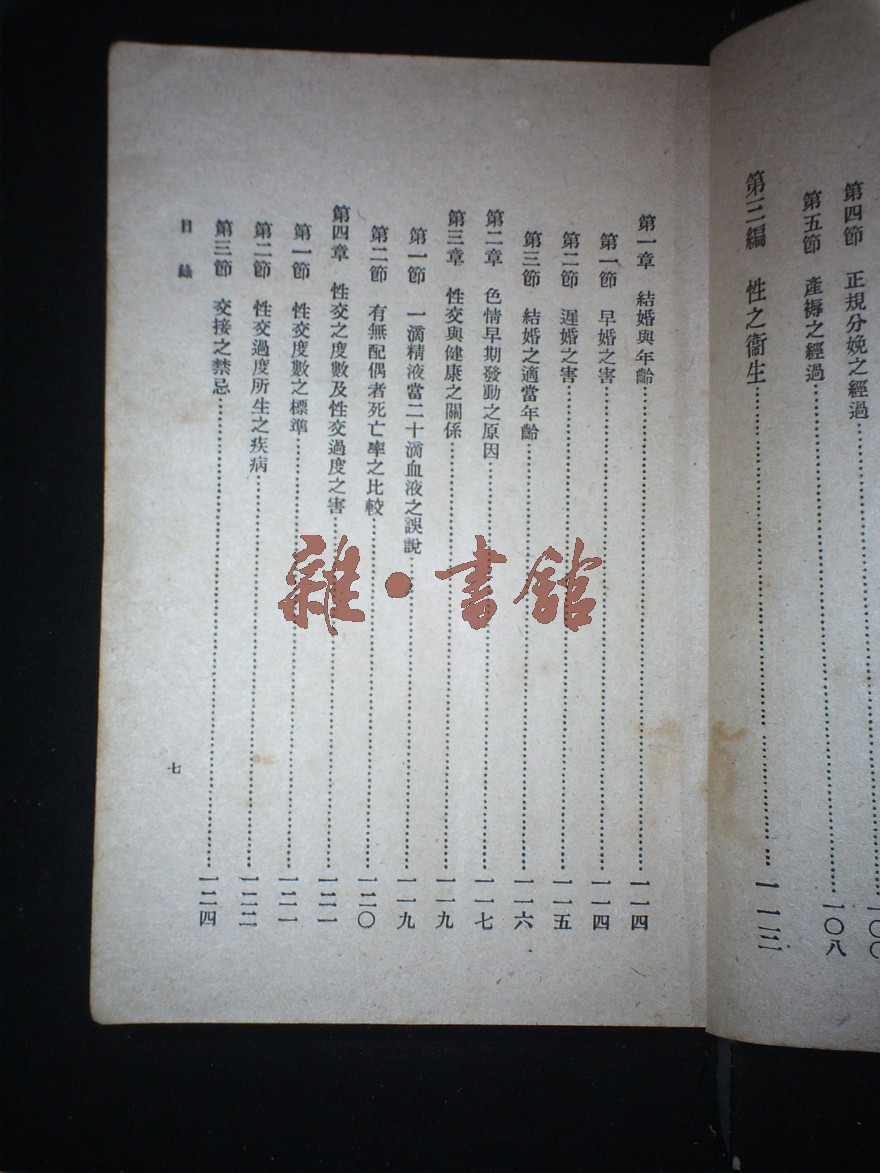 第四節 正規分娩之經過…………一〇〇
第五節 產褥之經過…………一〇八
第三編 性之衞生…………一一三
第一章 結婚與年齡…………一一四
第一節 早婚之害…………一一四
第二節 遲婚之害…………一一五
第三節 結婚之適當年齡…………一一六
第二章 色情早期發動之原因…………一一七
第三章 性交與健康之關係…………一一九
第一節 一滴精液當二十滴血液之誤說…………一一九
第二節 有無配偶者死亡率之比較…………一二〇
第四章 性交之度數及性交過度之害…………一二一
第一節 性交度數之標準…………一二一
第二節 性交過度所生之疾病…………一二二
第三節 交接之禁忌…………一二四
目錄
七
雜·書館